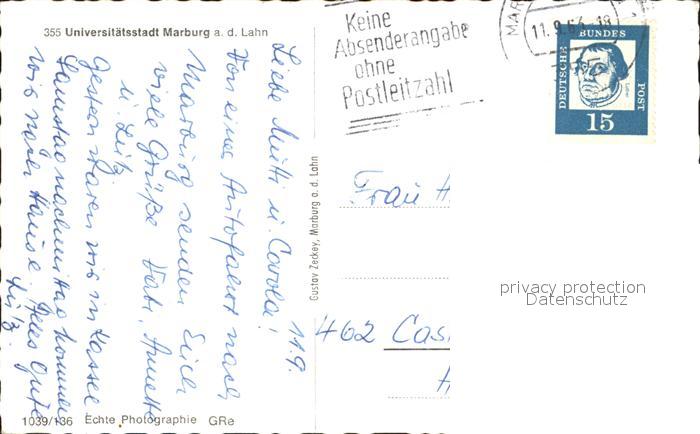 355 Universitätsstadt Marburg a. d. Lahn
11.9.
Liebe Mutti u. Carola!
Von einer Autofahrt nach
Marburg senden Euch
viele Grüße Vati, Annette
u. Lutz
Gestern waren wir in Kassel
Samstag nachmittag kommen
wir nach Hause. Alles Gute
Lutz.
1039/136 Echte Photographie GRe
Gustav Zeckey, Marburg a. d. Lahn
Keine
Absenderangabe
ohne
Postleitzahl
MAR
11.9.63 18
DEUTSCHE BUNDES POST
15
Frau H
462 Cas
privacy protection
Datenschutz